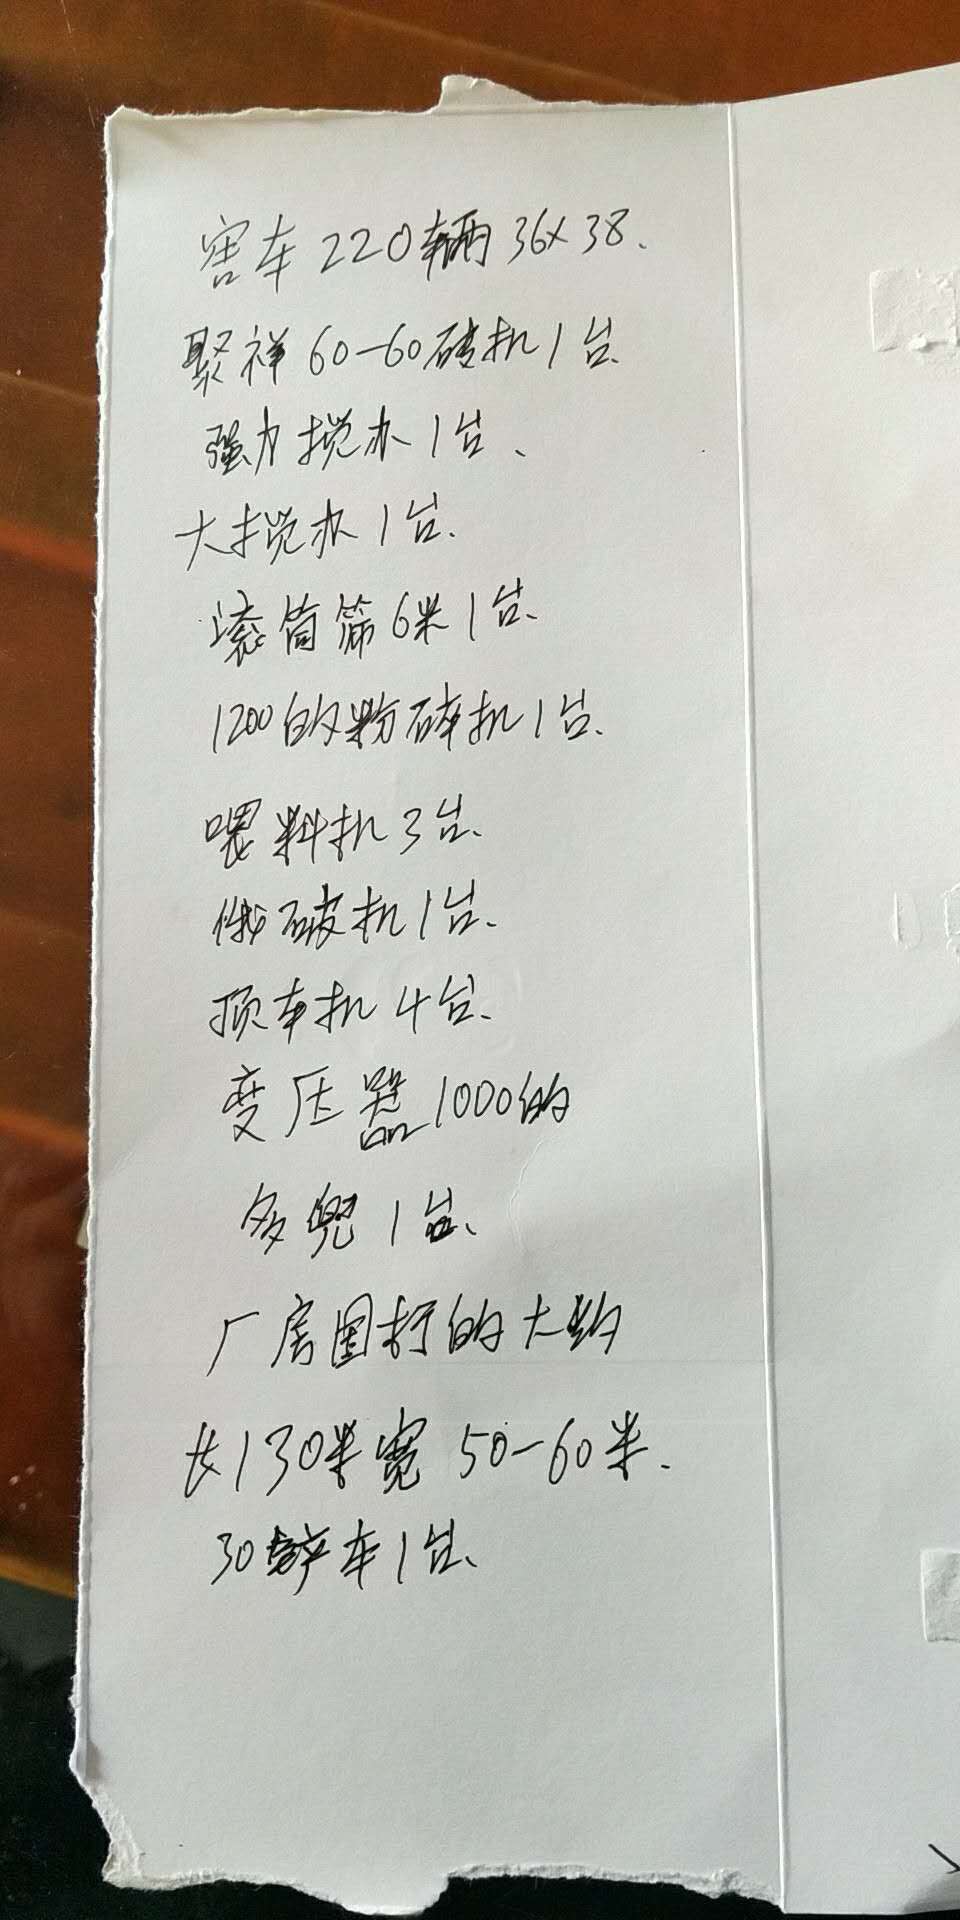 窑车220辆36×38、
聚祥60-60砖机1台、
强力搅办1台、
大搅办1台、
滚筒筛6米1台、
1200的粉碎机1台、
喂料机3台、
破机1台、
顶车机4台、
变压器1000的
多兜1台、
厂房国打的大约
长130米宽50-60米、
30铲车1台、